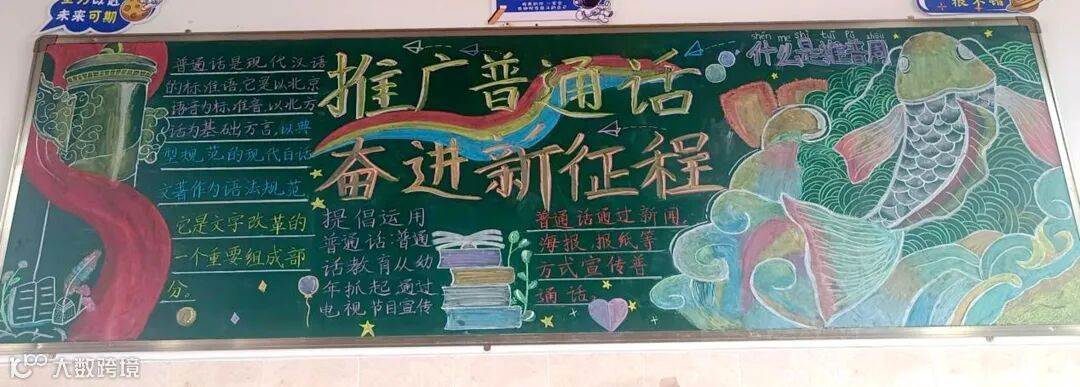 未来可期
很不错
推广普通话
奋进新征程
普通话是现代汉语
的标准语,它是以北京
语音为标准音,以北方
话为基础方言,以典
型规范的现代白话
文著作为语法规范
它是文字改革的
一个重要组成部
分。
提倡运用
普通话:普通
话教育从幼
年抓起通过
电视节目宣传
普通话通过新闻、
海报、报纸等
方式宣传普
通话。
shén me shì tuī pǔ zhōu
什么是推普周
大数跨境